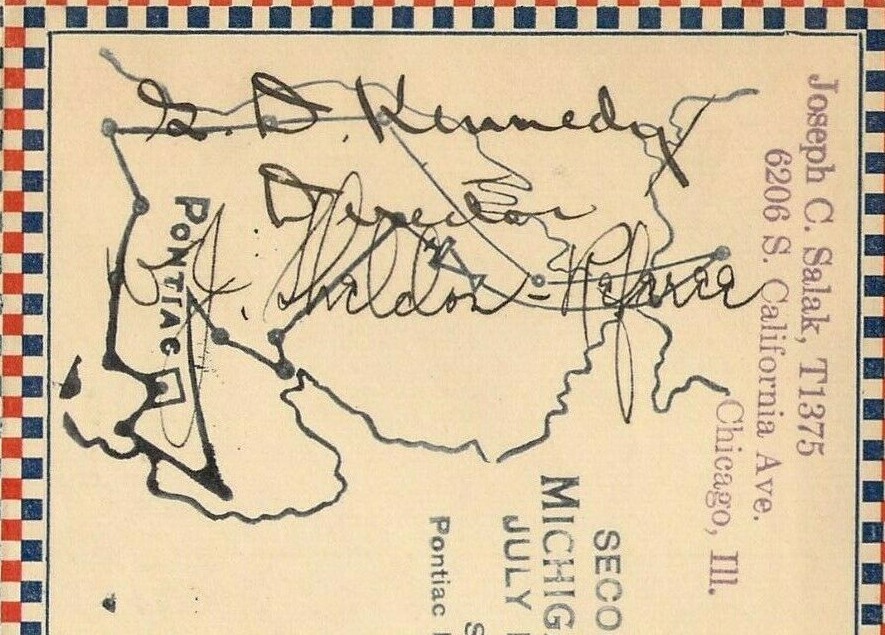 G. D. Kennedy
Director
J. Sheldon - Referee
Joseph C. Salak, T1375
6206 S. California Ave.
Chicago, Ill.
PONTIAC
SECO
MICHIG
JULY
S
Pontiac